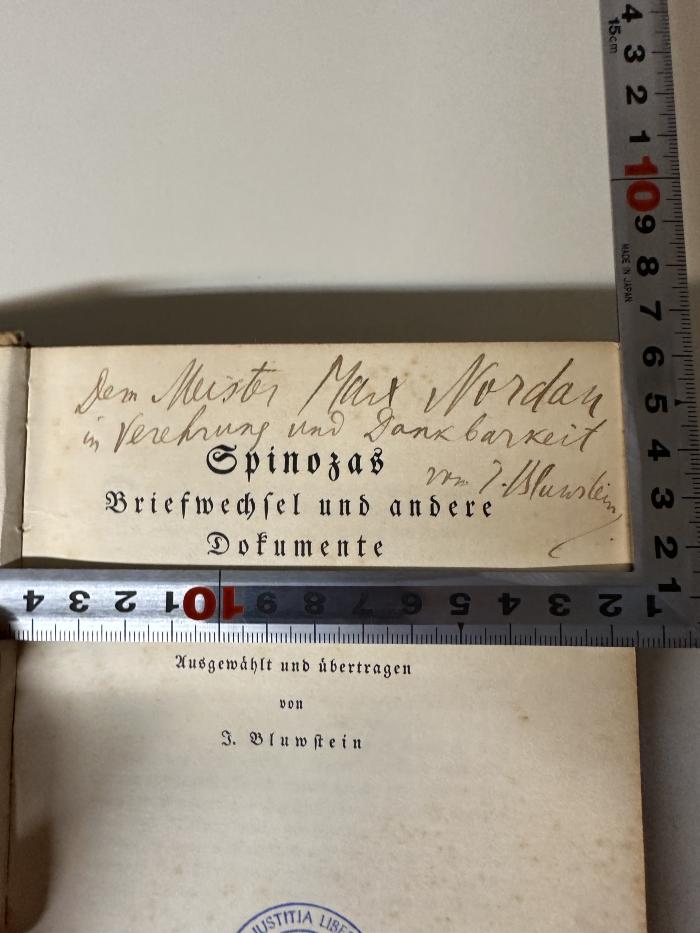 Dem Meister Max Nordau
in Verehrung und Dankbarkeit
von J. Bluwstein
Spinozas
Briefwechsel und andere
Dokumente
Ausgewählt und übertragen
von
J. Bluwstein
JUSTITIA LIBE
4 3 2 1 10 9 8 7 6 5 4 3 2 1
15cm
MADE IN JAPAN
4 3 2 1 10 1 9 8 7 6 5 4 3 2 1